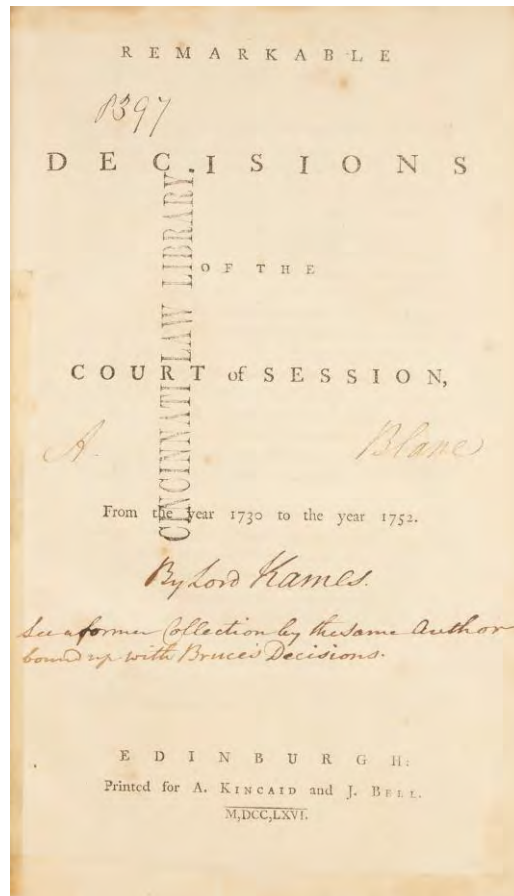 REMARKABLE
8397
DECISIONS
OF THE
COURT of SESSION,
CINCINNATI LAW LIBRARY.
A. Blane
From the year 1730 to the year 1752.
By Lord Kames.
See a former Collection by the same Author
bound up with Bruce's Decisions.
EDINBURGH:
Printed for A. KINCAID and J. BELL.
M,DCC,LXVI.